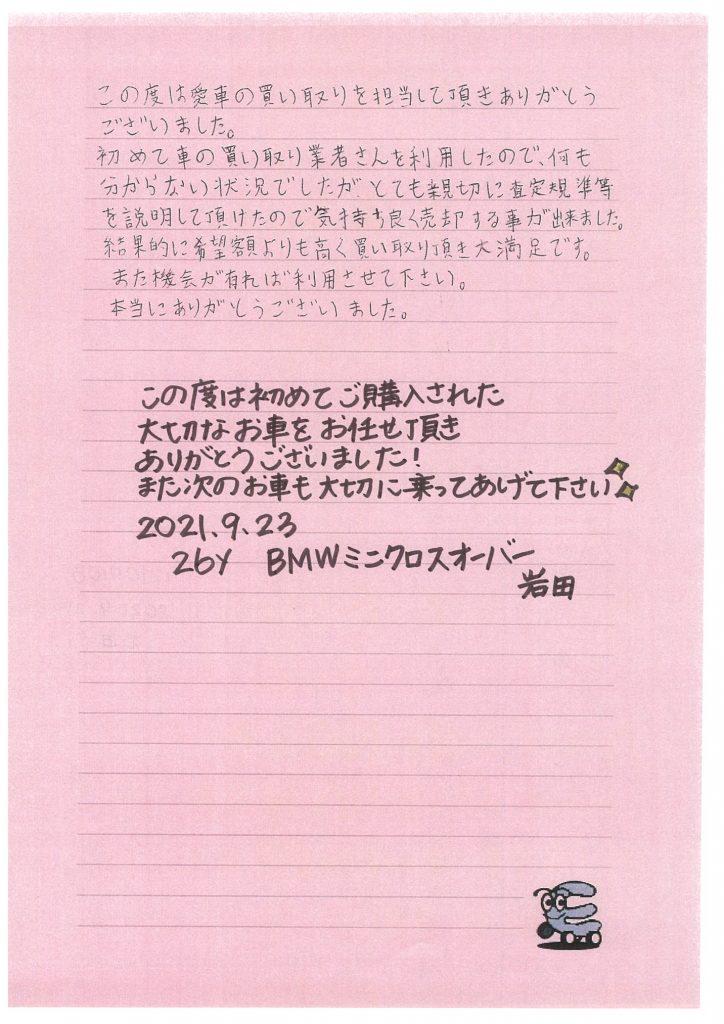 この度は愛車の買い取りを担当して頂きありがとう
ございました。
初めて車の買い取り業者さんを利用したので、何も
分からない状況でしたが、とても親切に査定規準等
を説明して頂けたので気持ち良く売却する事が出来ました。
結果的に希望額よりも高く買い取り頂き大満足です。
また機会が有れば利用させて下さい。
本当にありがとうございました。
この度は初めてご購入された
大切なお車をお任せ頂き
ありがとうございました!
また次のお車も大切に乗ってあげて下さい
2021.9.23
26y BMWミニクロスオーバー
岩田